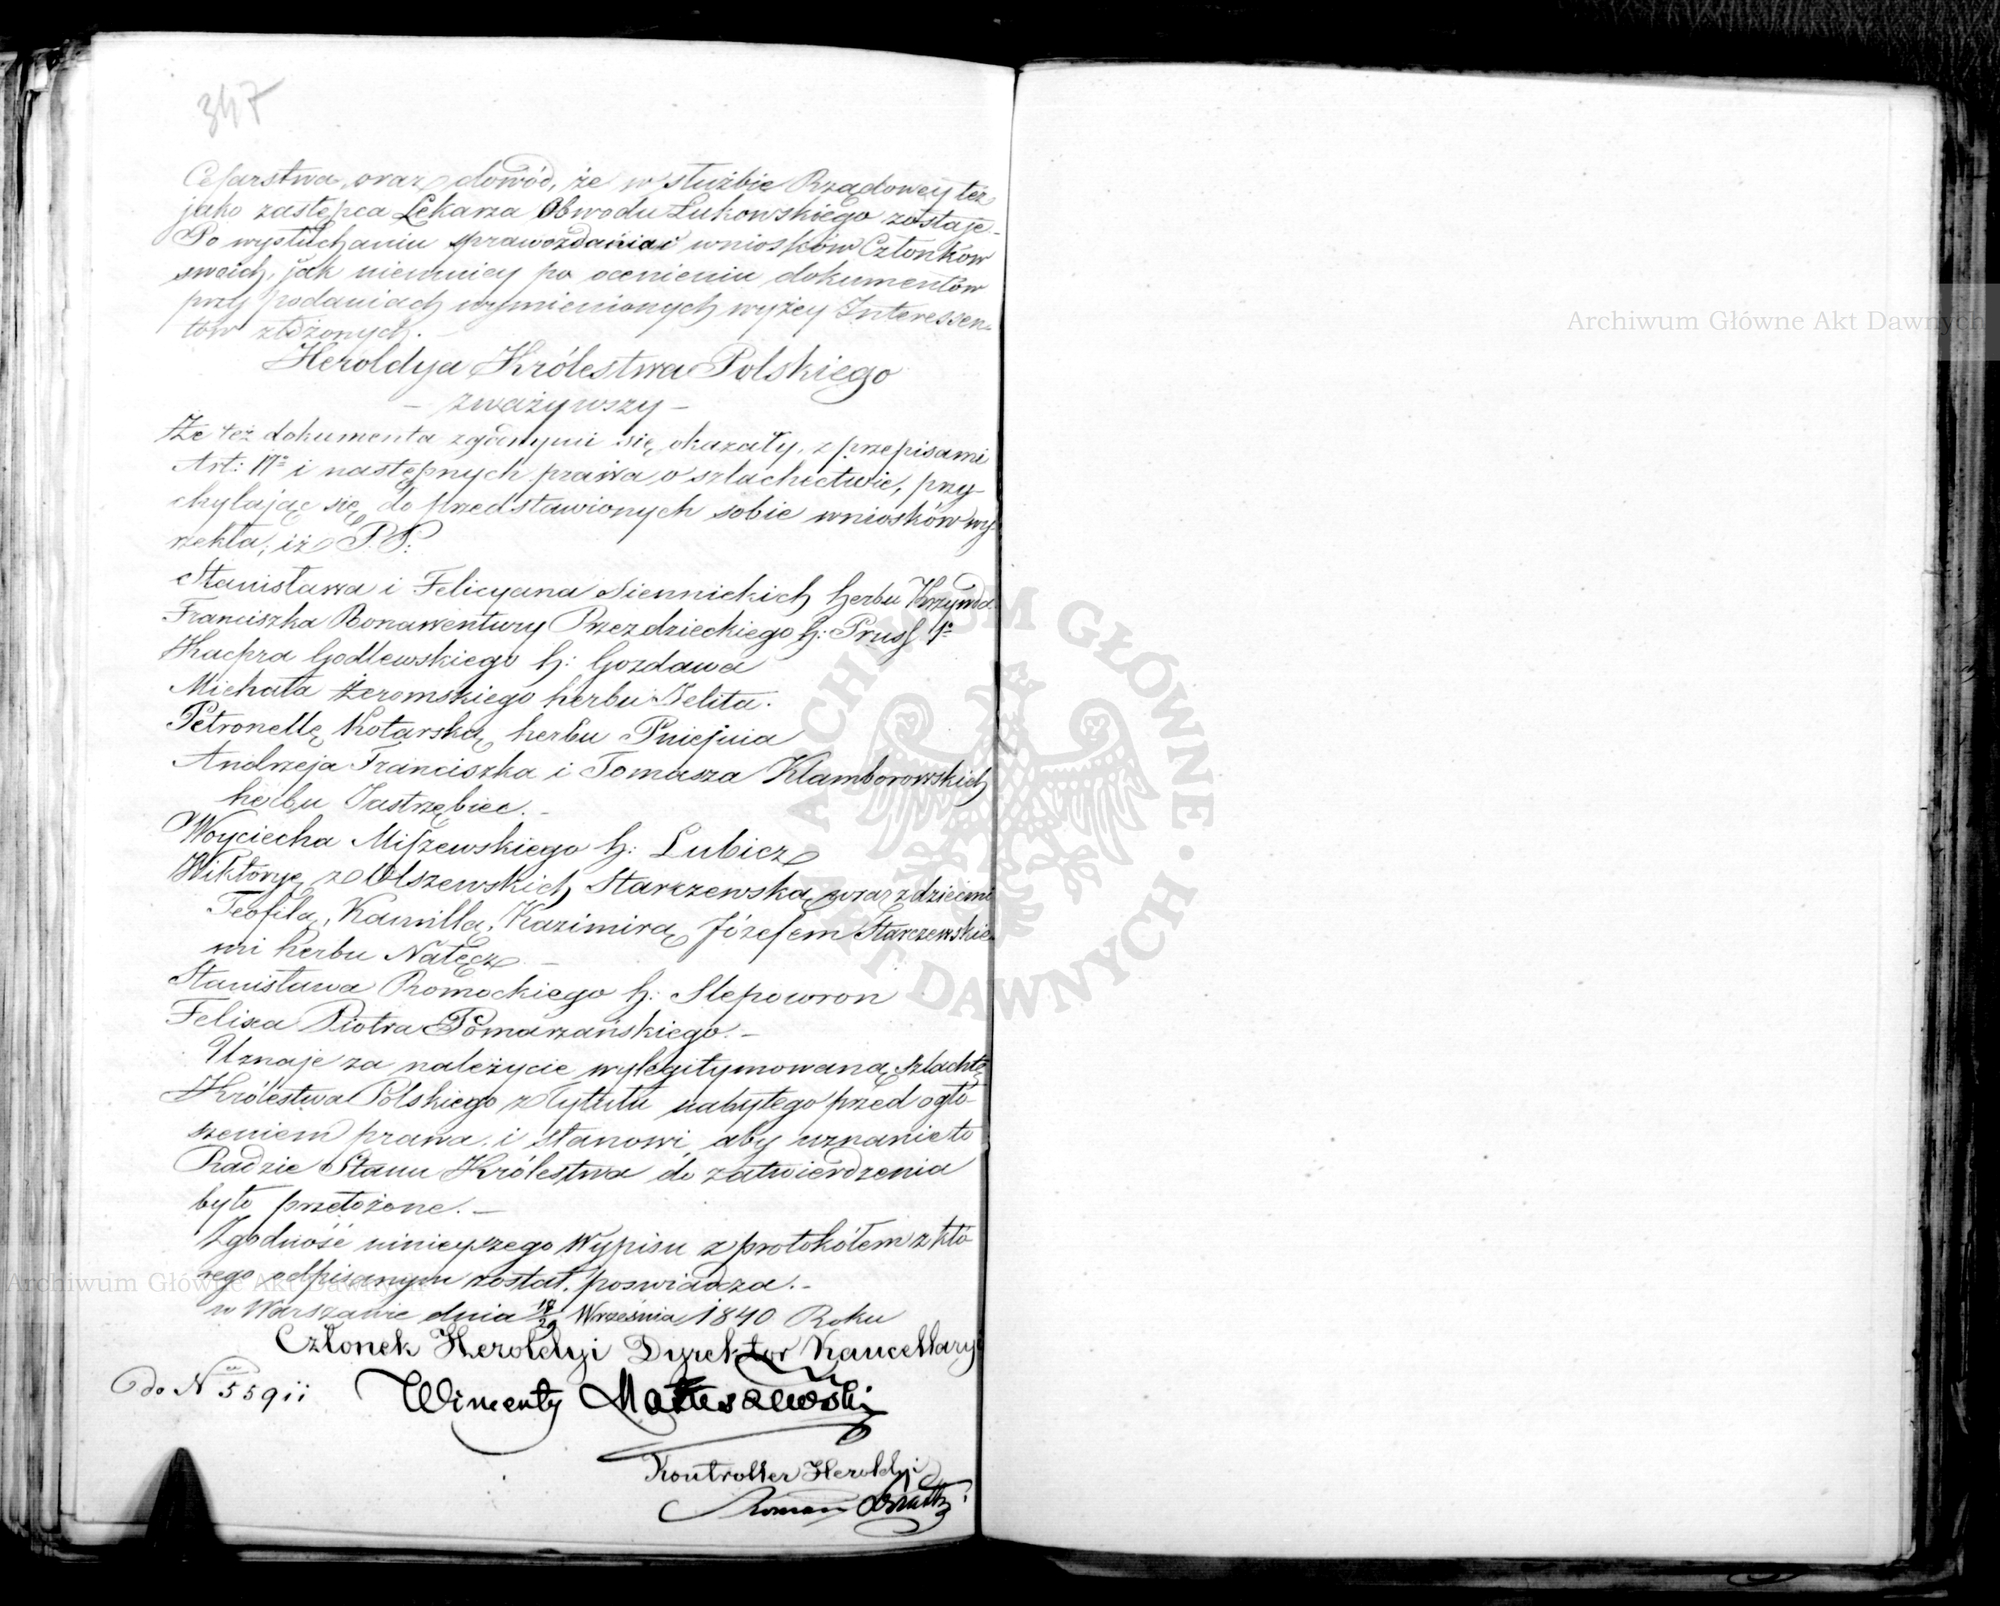 347
Cesarstwa, oraz dowód, że w służbie Rządowey też
jako zastępca Lekarza Obwodu Łukowskiego zostaje.–
Po wysłuchaniu sprawozdania i wniosków Członków
swoich, jak niemniey po ocenieniu dokumentów
przy podaniach wymienionych wyżey Interessen-
tów złożonych.–
Heroldya Królestwa Polskiego
– zważywszy –
Że też dokumenta zgodnymi się okazały, z przepisami
Art: 17º i następnych prawa o szlachectwie, przy-
chylając się do przedstawionych sobie wniosków wy-
rzekła, iż P. P:
Stanisława i Felicyana Siennickich herbu Krzywda
Franciszka Bonawentury Przezdzieckiego h: Pruss 1º
Kacpra Godlewskiego h: Gozdawa
Michała Żeromskiego herbu Jelita.
Petronellę Kotarską herbu Pniejnia
Andrzeja Franciszka i Tomasza Klamborowskich
herbu Jastrzębiec.–
Woyciecha Miszewskiego h: Lubicz
Wiktoryę z Olszewskich Starczewską wraz z dziećmi
Teofilą, Kamillą, Kazimirą Józefem Starczewskie-
mi herbu Nałęcz.–
Stanisława Romockiego h: Slepowron
Felixa Piotra Pomarzańskiego.–
Uznaje za należycie wylegitymowaną szlachtę
Królestwa Polskiego z tytułu nabytego przed ogło-
szeniem prawa i stanowi, aby uznanie to
Radzie Stanu Królestwa do zatwierdzenia
było przełożone.–
Zgodność ninieyszego Wypisu z protokółem z któ-
rego odpisanym został, poswiadcza.–
w Warszawie dnia 18/29 Września 1840 Roku
Członek Heroldyi Dyrektor Kancellaryi
do N 5591
Wincenty Matuszewski
Kontroller Heroldyi
Roman
Archiwum Główne Akt Dawnych
Archiwum Główne Akt Dawnych
ARCHIWUM GŁÓWNE AKT DAWNYCH